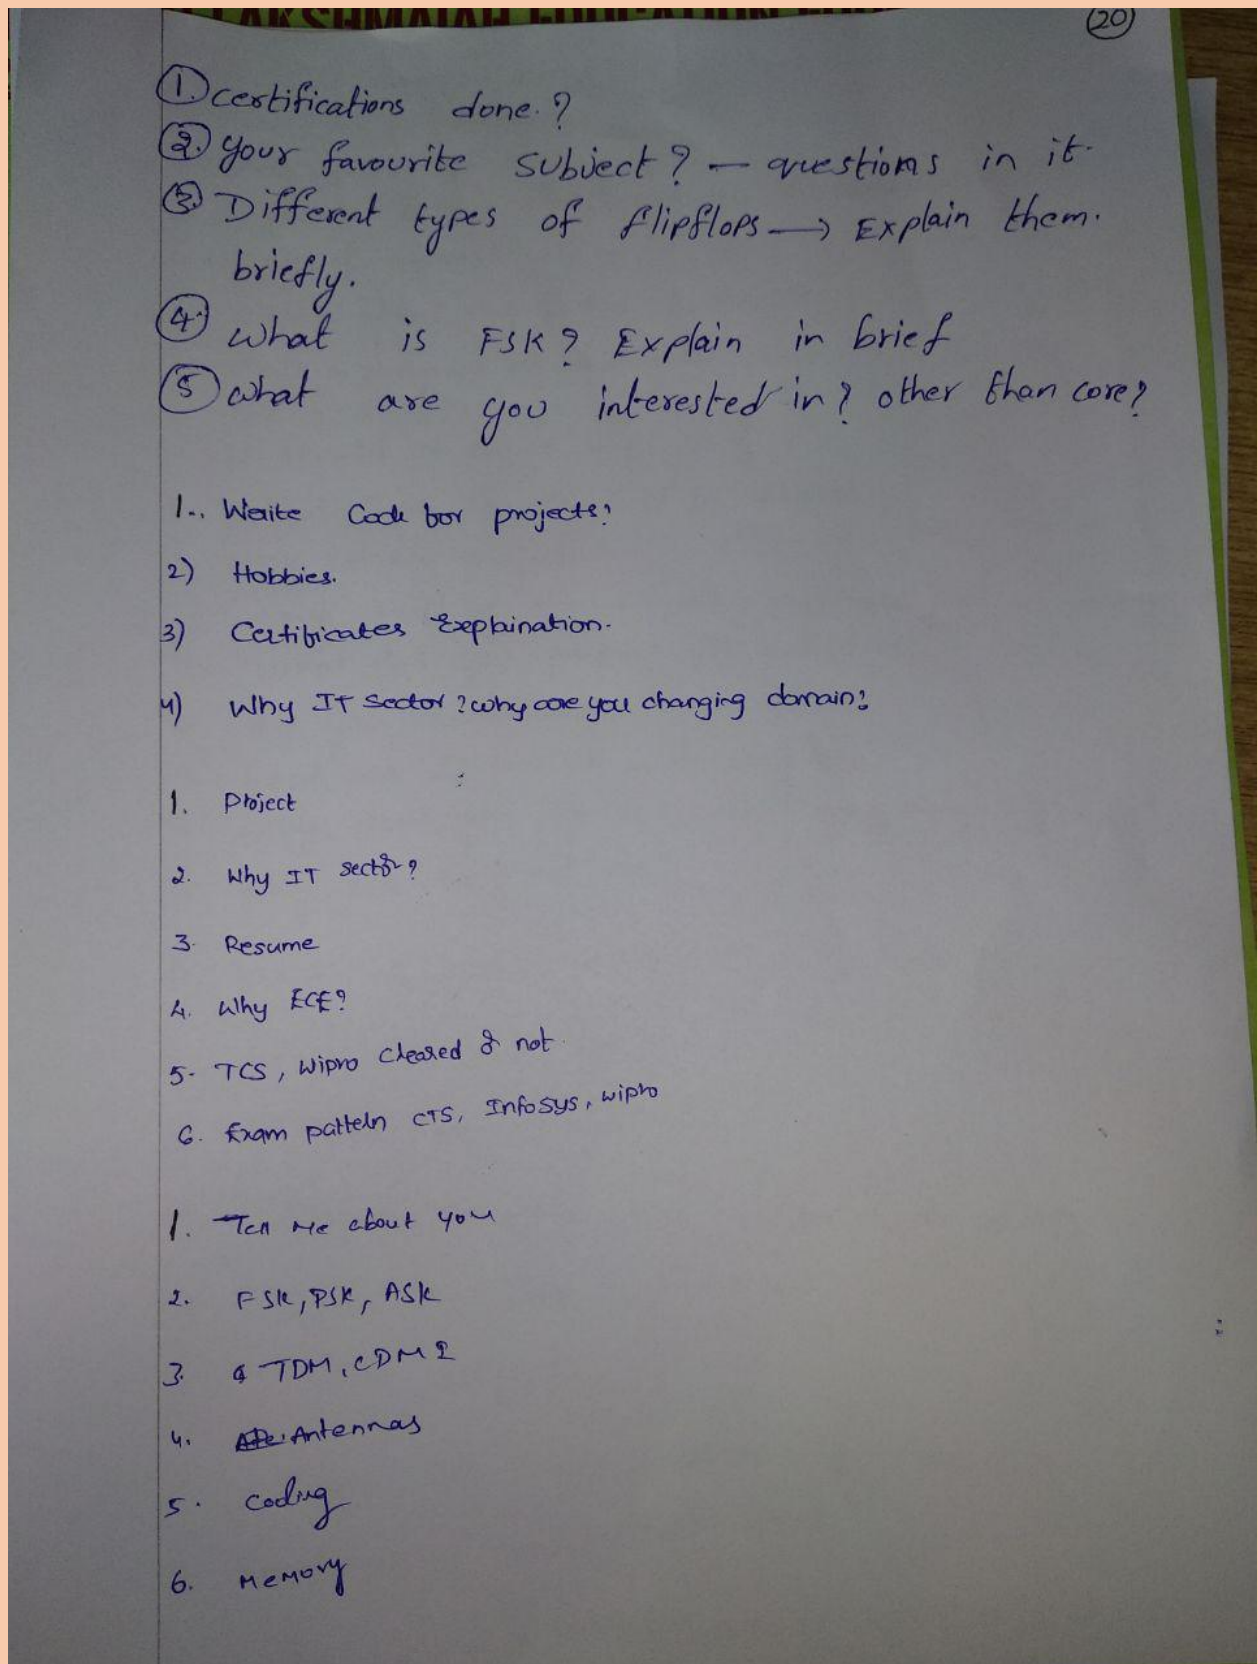 LAKSHMAIAH EDUCATION
20
1. certifications done.?
2. your favourite subject? - questions in it.
3. Different types of flipflops → Explain them.
briefly.
4. what is FSK? Explain in brief
5 what are you interested in? other than core?
1.. Write Code for projects?
2) Hobbies.
3) Certificates Explaination.
4) Why IT sector? why are you changing domain?
1. Project
2. Why IT sector?
3. Resume
4. Why ECE?
5. TCS, Wipro cleared or not.
6. Exam pattern CTS, Infosys, wipro
1. Tell me about you
2. FSK, PSK, ASK
3. TDM, CDM?
4. Antennas
5. Coding
6. Memory